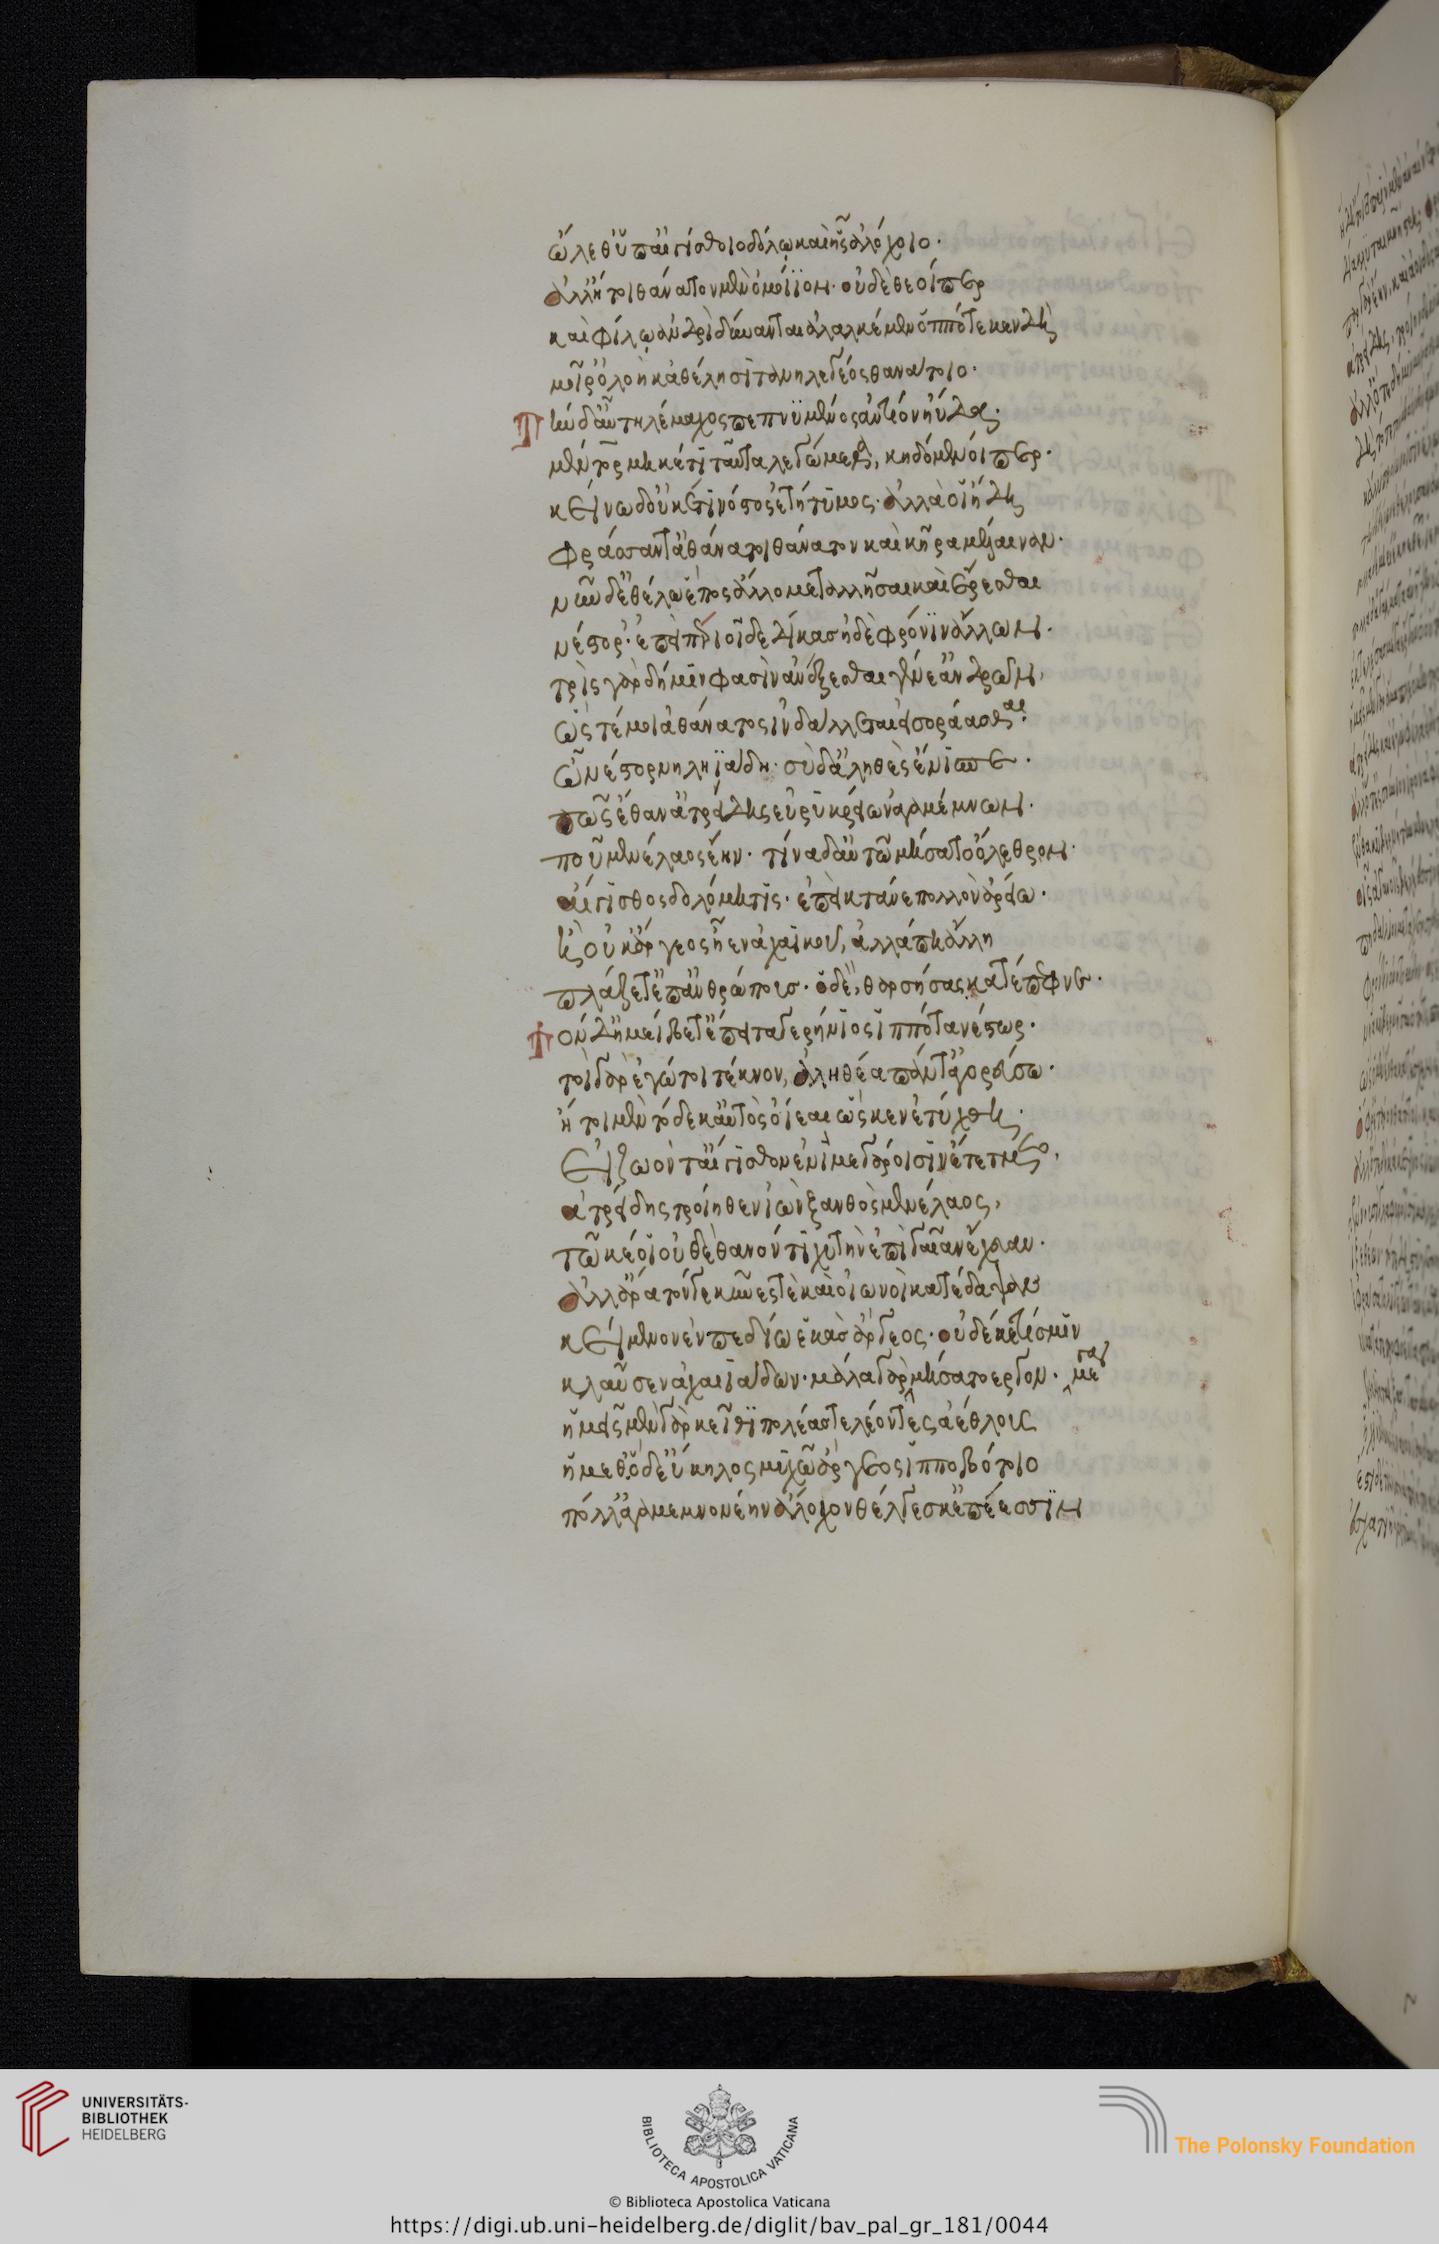 ὤλεθ' ὑπ' αἰγίσθοιο δόλω καὶ ἧς ἀλόχοιο.
ἀλλ' ἤτοι θάνατον μὲν ὁμοίϊον. οὐδὲ θεοί περ
καὶ φίλω ἀνδρὶ δύνανται ἀλαλκέμεν ὁππότε κεν δὴ
μοῖρ' ὀλοὴ καθέλησι τανηλεγέος θανάτοιο.
Τὴν δ' αὖ τηλέμαχος πεπνυμένος ἀντίον ηὔδα.
μέντορ μηκέτι ταῦτα λεγώμεθα, κηδόμενοί περ.
κείνω δ' οὐκέτι νόστος ἐτήτυμος. ἀλλά οἱ ἤδη
φράσαντ' ἀθάνατοι θάνατον καὶ κῆρα μέλαιναν.
νῦν δ' ἐθέλω ἔπος ἄλλο μεταλλῆσαι καὶ ἔρεσθαι
νέστορ'. ἐπεὶ περίοιδε δίκας ἠδὲ φρόνιν ἄλλων.
τρὶς γὰρ δή μιν φασὶν ἀνάξεσθαι γένε' ἀνδρῶν,
ὥς τέ μοι ἀθάνατος ἰνδάλλεται εἰσοράασθαι.
ὦ νέστορ νηληϊάδη. σὺ δ' ἀληθὲς ἔνισπε.
πῶς ἔθαν' ἀτρείδης εὐρυκρείων ἀγαμέμνων.
ποῦ μενέλαος ἔην. τίνα δ' αὐτῶ μήσατ' ὄλεθρον.
αἴγισθος δολόμητις. ἐπεὶ κτάνε πολλὸν ἀρείω.
ἦ οὐκ ἄργεος ἦεν ἀχαιϊκοῦ, ἀλλά πη ἄλλη
πλάζετ' ἐπ' ἀνθρώπους. ὁ δὲ, θαρσήσας κατέπεφνε.
Τὸν δ' ἠμείβετ' ἔπειτα γερήνιος ἱππότα νέστωρ.
τοὶ γὰρ ἐγώ τοι τέκνον, ἀληθέα πάντ' ἀγορεύσω.
ἤτοι μὲν τόδε καὐτὸς ὀίεαι ὥς κεν ἐτύχθη.
Εἰ ζωόντ' αἴγισθον ἐνὶ μεγάροισιν ἔτετμεν,
ἀτρείδης τροίηθεν ἰὼν ξανθὸς μενέλαος,
τῶ κέ οἱ οὐδὲ θανόντι χυτὴν ἐπὶ γαῖαν ἔχευαν.
ἀλλ' ἄρα τόνγε κύνες τὲ καὶ οἰωνοὶ κατέδαψαν
κείμενον ἐν πεδίω ἑκὰς ἄργεος. οὐδέ κέ τίς μιν
κλαῦσεν ἀχαιϊάδων. μάλα γὰρ μήσατο ἔργον. μέγα
ἡμεῖς μὲν γὰρ κεῖθι πολέας τελέοντες ἀέθλους
ἥμεθ'. ὁ δ' εὔκηλος μυχῶ ἄργεος ἱπποβότοιο
πόλλ' ἀγαμεμνονέην ἄλοχον θέλγεσκ' ἐπέεσσιν
UNIVERSITÄTS-
BIBLIOTHEK
HEIDELBERG
BIBLIOTECA APOSTOLICA VATICANA
The Polonsky Foundation
© Biblioteca Apostolica Vaticana
https://digi.ub.uni-heidelberg.de/diglit/bav_pal_gr_181/0044